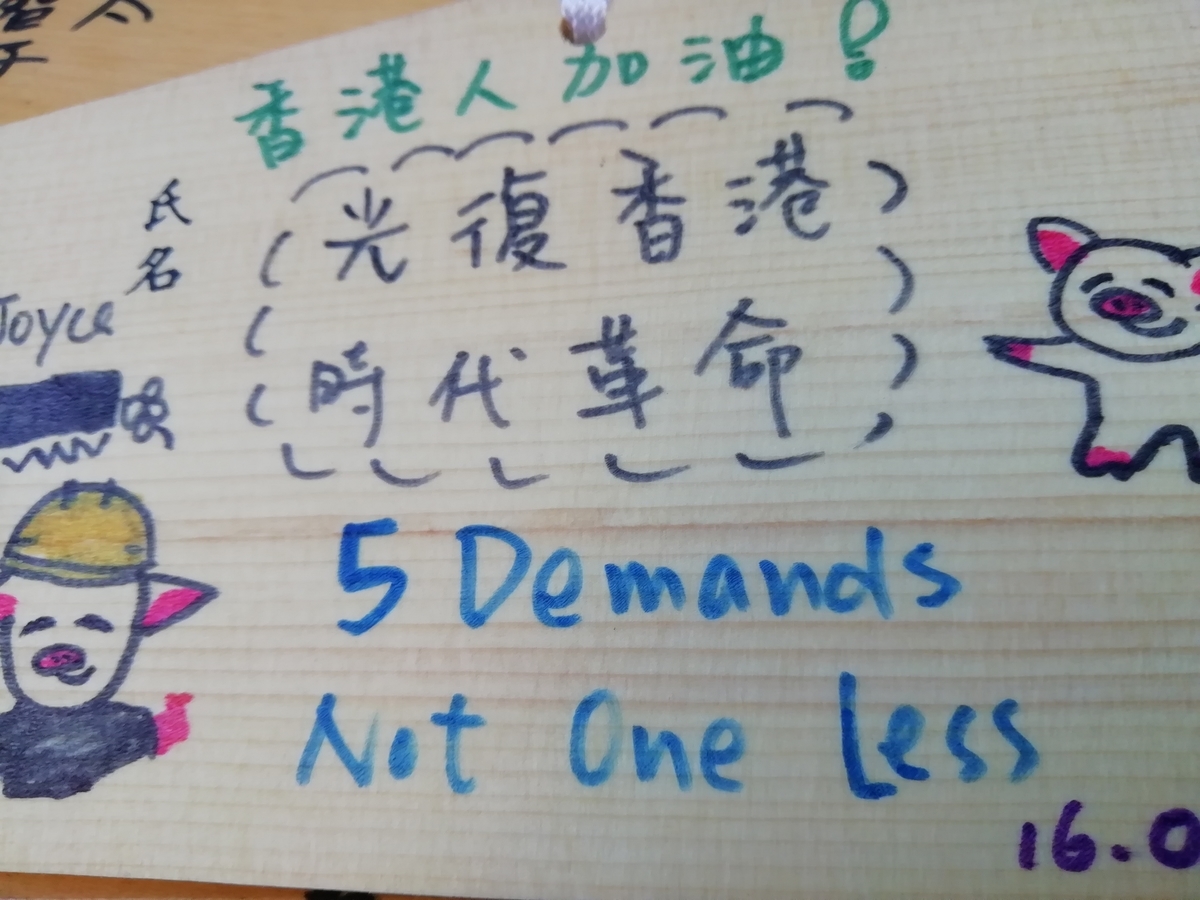 香港人加油！
光復香港
時代革命
氏名
Joyce
5 Demands
Not One Less
16.0